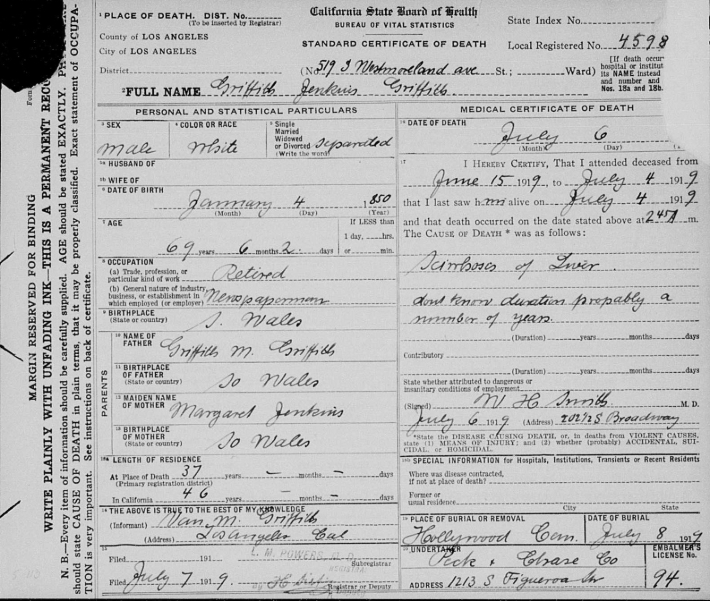 ¹PLACE OF DEATH. DIST. No.
(To be inserted by Registrar)
County of LOS ANGELES
City of LOS ANGELES
District
California State Board of Health
BUREAU OF VITAL STATISTICS
STANDARD CERTIFICATE OF DEATH
State Index No.
Local Registered No. 4598
(No. 519 S Westmoreland ave St.; Ward)
[If death occur
hospital or institut
its NAME instead
and number and
Nos. 18a and 18b.
²FULL NAME Griffith Jenkins Griffith
PERSONAL AND STATISTICAL PARTICULARS
³SEX
male
⁴COLOR OR RACE
White
⁵Single
Married
Widowed
or Divorced
(Write the word)
Separated
HUSBAND OF
WIFE OF
⁶DATE OF BIRTH
January 4 1850
(Month) (Day) (Year)
⁷AGE
69 years 6 months 2 days
If LESS than
1 day, hrs.
or min.
⁸OCCUPATION
(a) Trade, profession, or
particular kind of work Retired
(b) General nature of industry,
business, or establishment in
which employed (or employer) Newspaperman
⁹BIRTHPLACE
(State or country) S. Wales
PARENTS
¹⁰NAME OF
FATHER Griffith M. Griffith
¹¹BIRTHPLACE
OF FATHER
(State or country) So Wales
¹²MAIDEN NAME
OF MOTHER Margaret Jenkins
¹³BIRTHPLACE
OF MOTHER
(State or country) So Wales
LENGTH OF RESIDENCE
At Place of Death 37 years – months – days
(Primary registration district)
In California 46 years – months – days
¹⁴THE ABOVE IS TRUE TO THE BEST OF MY KNOWLEDGE
(Informant) Van M. Griffith
(Address) Los Angeles Cal
¹⁵
Filed 191
L. M. POWERS, M. D.
Subregistrar
Filed July 7 1919
Registrar or Deputy
MEDICAL CERTIFICATE OF DEATH
¹⁶DATE OF DEATH
July 6
(Month) (Day)
¹⁷ I HEREBY CERTIFY, That I attended deceased from
June 15 1919, to July 4 1919
that I last saw him alive on July 4 1919
and that death occurred on the date stated above at m.
The CAUSE OF DEATH * was as follows:
Scirrhoses of Liver
dont know duration propably a
number of years.
(Duration) years months days
Contributory
(Duration) years months days
State whether attributed to dangerous or
insanitary conditions of employment
(Signed) W H Smith M. D.
July 6 1919 (Address) 202½ S Broadway
*State the DISEASE CAUSING DEATH, or, in deaths from VIOLENT CAUSES,
state (1) MEANS OF INJURY; and (2) whether (probably) ACCIDENTAL, SUI-
CIDAL, or HOMICIDAL.
SPECIAL INFORMATION for Hospitals, Institutions, Transients or Recent Residents
Where was disease contracted,
if not at place of death?
Former or
usual residence
City State
¹⁹PLACE OF BURIAL OR REMOVAL
Hollywood Cem.
DATE OF BURIAL
July 8 1919
²⁰UNDERTAKER
Peck & Chase Co
ADDRESS 1213 S Figueroa St
EMBALMER'S
LICENSE No.
94.
MARGIN RESERVED FOR BINDING
WRITE PLAINLY WITH UNFADING INK—THIS IS A PERMANENT RECO
N. B.—Every item of information should be carefully supplied. AGE should be stated EXACTLY.
should state CAUSE OF DEATH in plain terms, that it may be properly classified. Exact statement of OCCUPA-
TION is very important. See instructions on back of certificate.